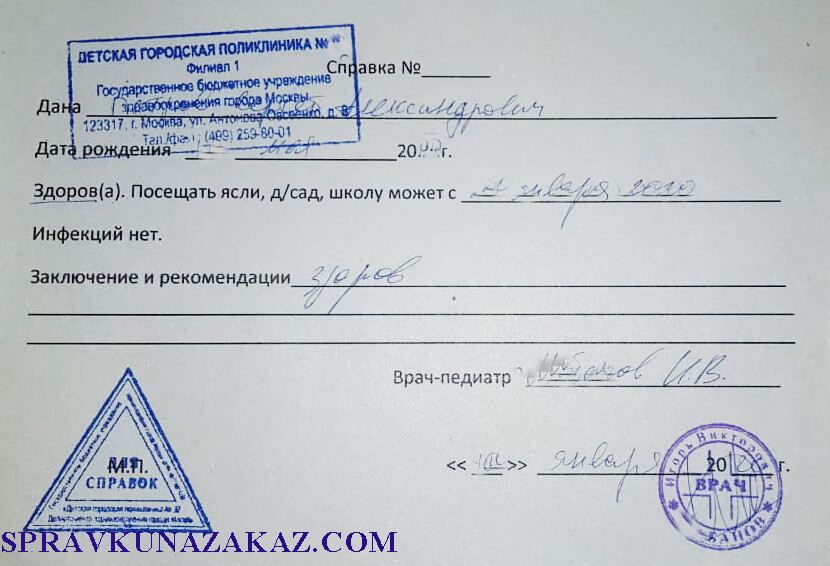 ДЕТСКАЯ ГОРОДСКАЯ ПОЛИКЛИНИКА №
Филиал 1
Государственное бюджетное учреждение
здравоохранения города Москвы
123317, г. Москва, ул. Антонова-Овсеенко, д. 8
Тел./факс (499) 259-60-01
Справка №
Дана Александрович
Дата рождения мая 20 г.
Здоров(а). Посещать ясли, д/сад, школу может с января 2020
Инфекций нет.
Заключение и рекомендации здоров
Врач-педиатр И.В.
М.П.
ДЛЯ
СПРАВОК
<< >> января 20 г.
Игорь Викторович
ВРАЧ
SPRAVKUNAZAKAZ.COM